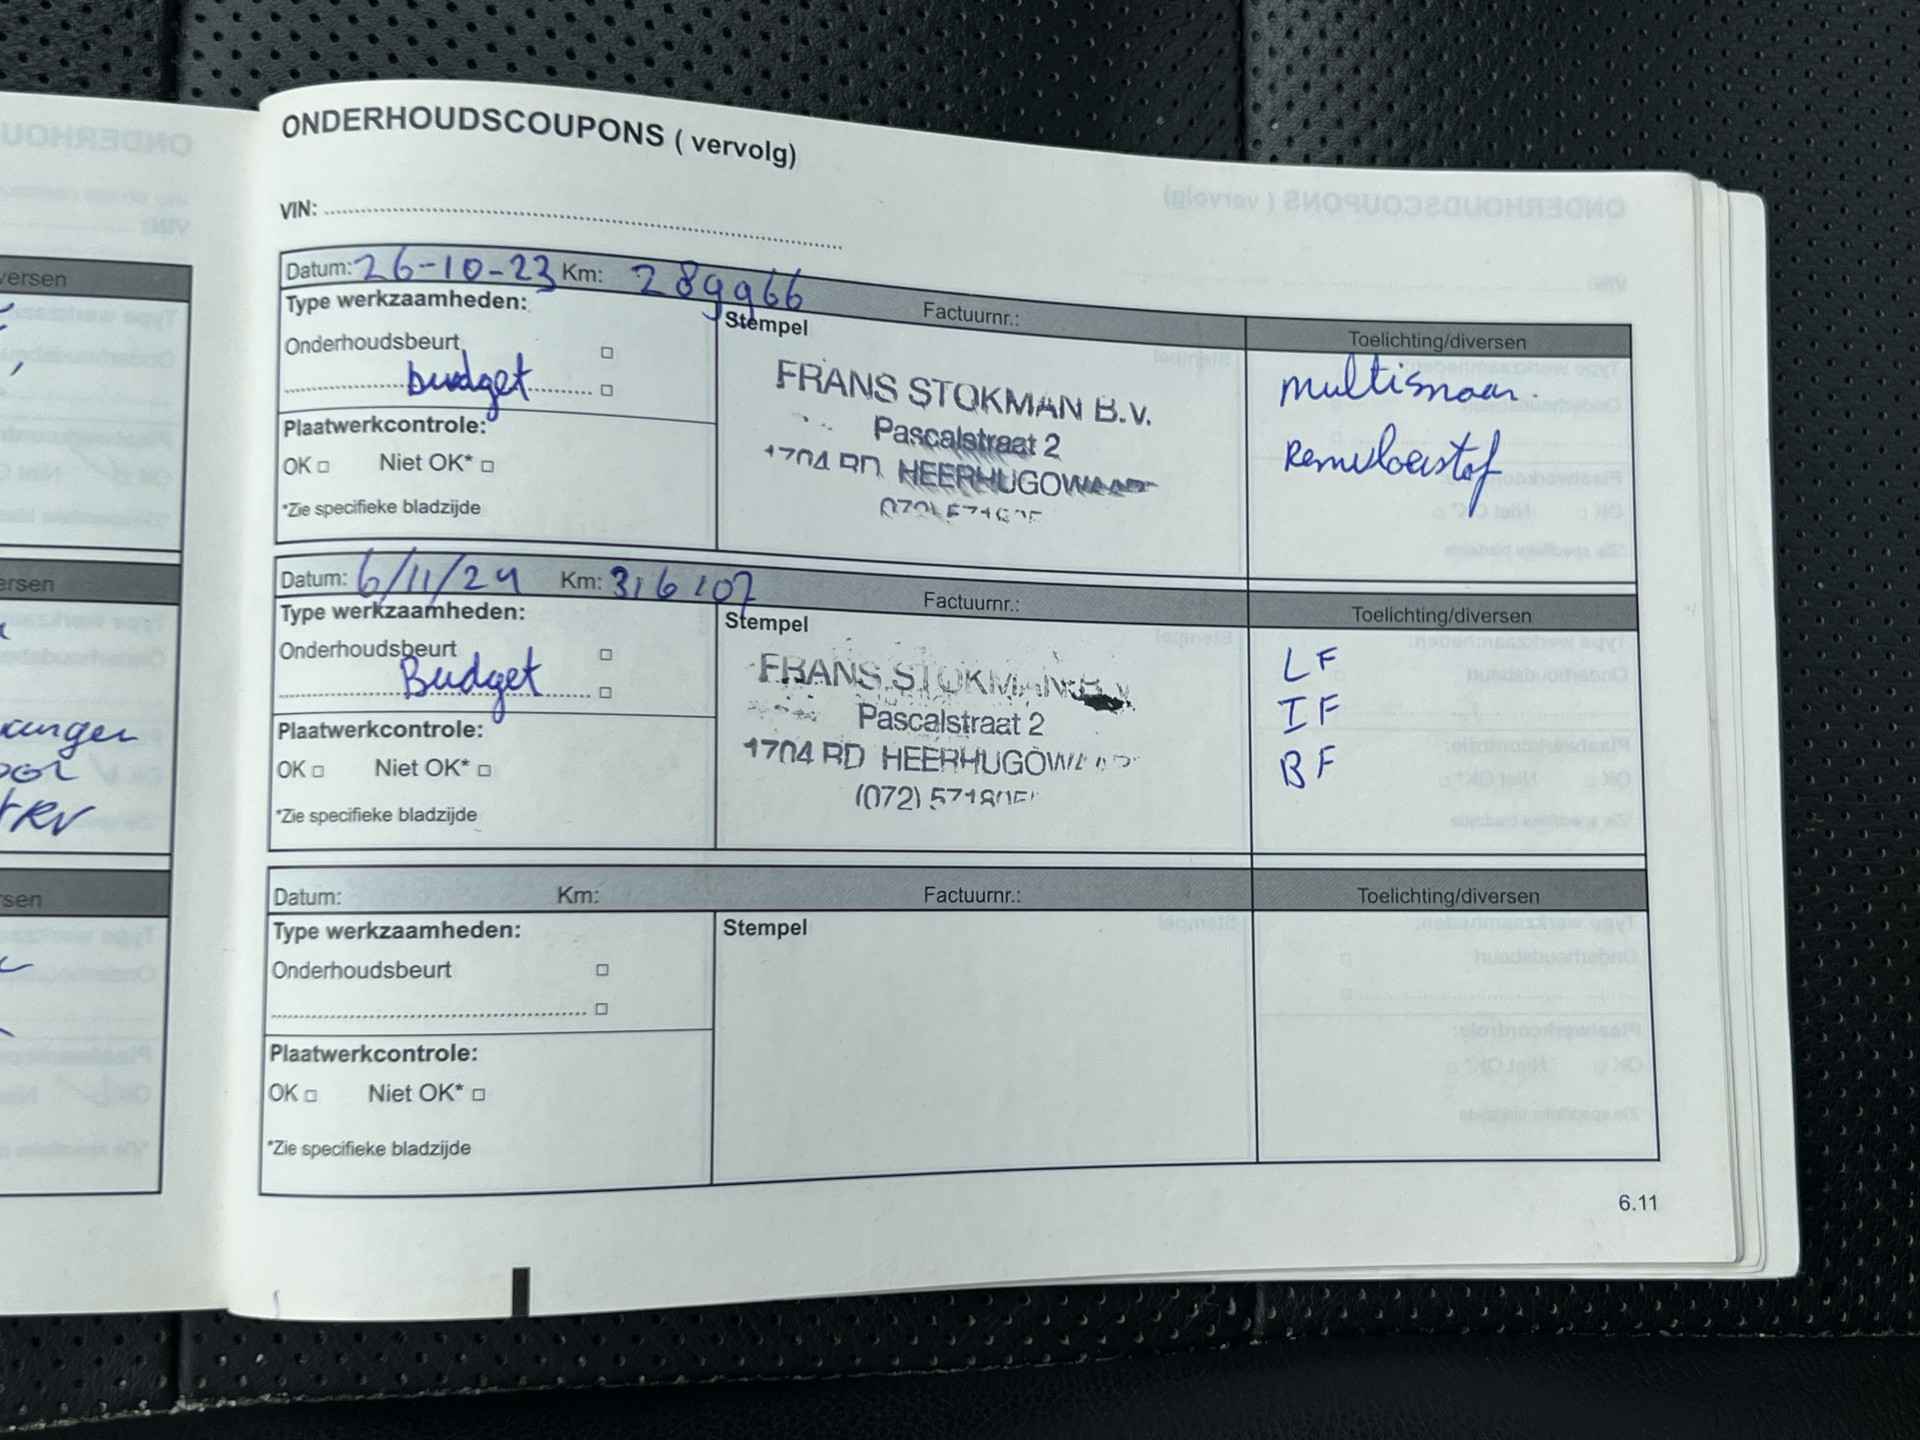 ONDERHOUDSCOUPONS ( vervolg)
VIN:
Datum: 26-10-23 Km: 289966 Factuurnr.: Toelichting/diversen
Type werkzaamheden:
Stempel
Onderhoudsbeurt
budget
Plaatwerkcontrole:
OK Niet OK*
*Zie specifieke bladzijde
FRANS STOKMAN B.V.
Pascalstraat 2
1704 RD HEERHUGOWAARD
multisnaar.
Remvloeistof
Datum: 6/11/24 Km: 316107 Factuurnr.: Toelichting/diversen
Type werkzaamheden:
Stempel
Onderhoudsbeurt
Budget
Plaatwerkcontrole:
OK Niet OK*
*Zie specifieke bladzijde
FRANS STOKMAN B.V.
Pascalstraat 2
1704 RD HEERHUGOWAARD
(072)
LF
IF
BF
Datum: Km: Factuurnr.: Toelichting/diversen
Type werkzaamheden:
Stempel
Onderhoudsbeurt
Plaatwerkcontrole:
OK Niet OK*
*Zie specifieke bladzijde
6.11